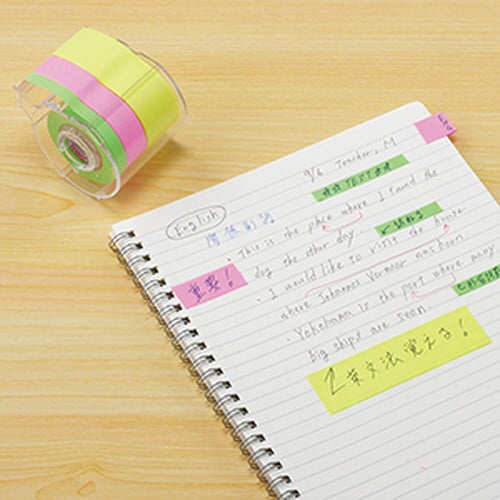 9/6 Teacher. M
English
TEST
関係副詞
・This is the place where I found the
dog the other day
・I would like to visit the house
重要!
where Johannes Vermeer was born.
・Yokohama is the port where many
big ships are seen.
英文法覚える!